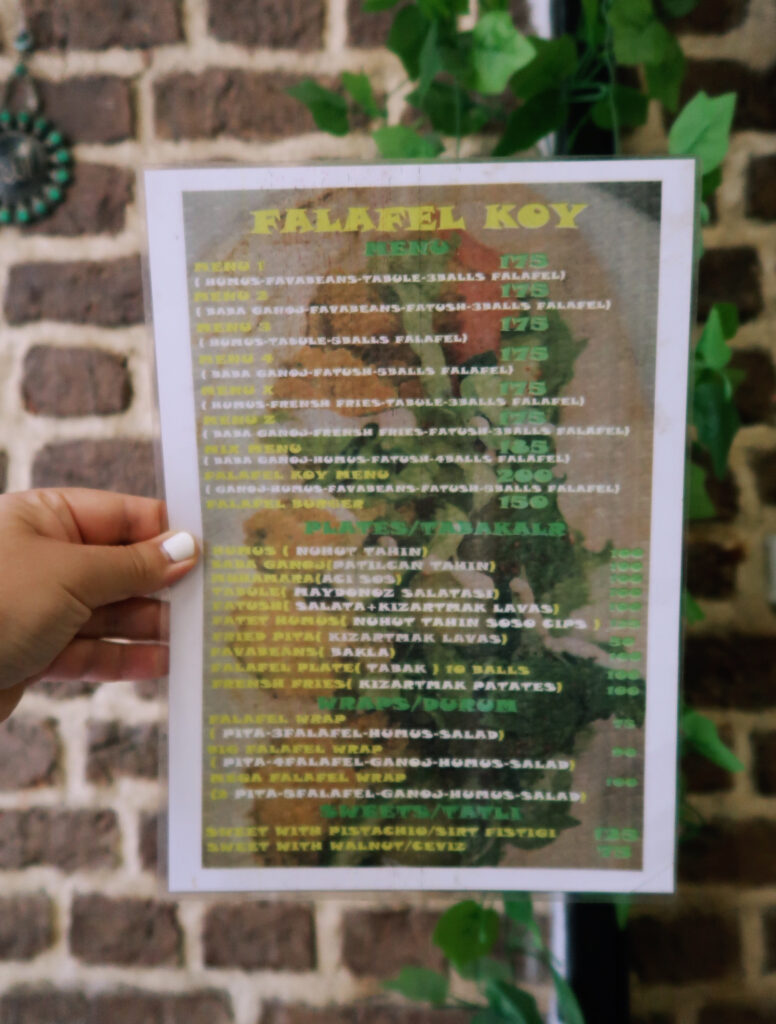 FALAFEL KOY
MENU
MENU 1 175
( HUMUS-FAVABEANS-TABULE-3BALLS FALAFEL)
MENU 2 175
( BABA GANOJ-FAVABEANS-FATUSH-3BALLS FALAFEL)
MENU 3 175
( HUMUS-TABULE-5BALLS FALAFEL)
MENU 4 175
(BABA GANOJ-FATUSH-5BALLS FALAFEL)
MENU X 175
(HUMUS-FRENSH FRIES-TABULE-3BALLS FALAFEL)
MENU Z 175
( BABA GANOJ-FRENSH FRIES-FATUSH-3BALLS FALAFEL)
MIX MENU 185
( BABA GANOJ-HUMUS-FATUSH-4BALLS FALAFEL)
FALAFEL KOY MENU 200
( GANOJ-HUMUS-FAVABEANS-FATUSH-5BALLS FALAFEL)
FALAFEL BURGER 150
PLATES/TABAKALR
HUMUS ( NUHUT TAHIN) 100
BABA GANOJ(PATILCAN TAHIN) 100
MUHAMARA(ACI SOS) 100
TABULE( MAYDONOZ SALATASI) 100
FATUSH( SALATA+KIZARTMAK LAVAS) 100
FATET HUMUS( NUHUT TAHIN SOSO CIPS )
FRIED PITA( KIZARTMAK LAVAS)
FAVABEANS( BAKLA) 100
FALAFEL PLATE( TABAK ) 10 BALLS 100
FRENSH FRIES( KIZARTMAK PATATES) 100
WRAPS/DURUM
FALAFEL WRAP 75
( PITA-3FALAFEL-HUMUS-SALAD)
BIG FALAFEL WRAP 90
( PITA-4FALAFEL-GANOJ-HUMUS-SALAD)
MEGA FALAFEL WRAP 100
(2 PITA-5FALAFEL-GANOJ-HUMUS-SALAD)
SWEETS/TATLI
SWEET WITH PISTACHIO/SIRT FISTIGI 125
SWEET WITH WALNUT/CEVIZ 75